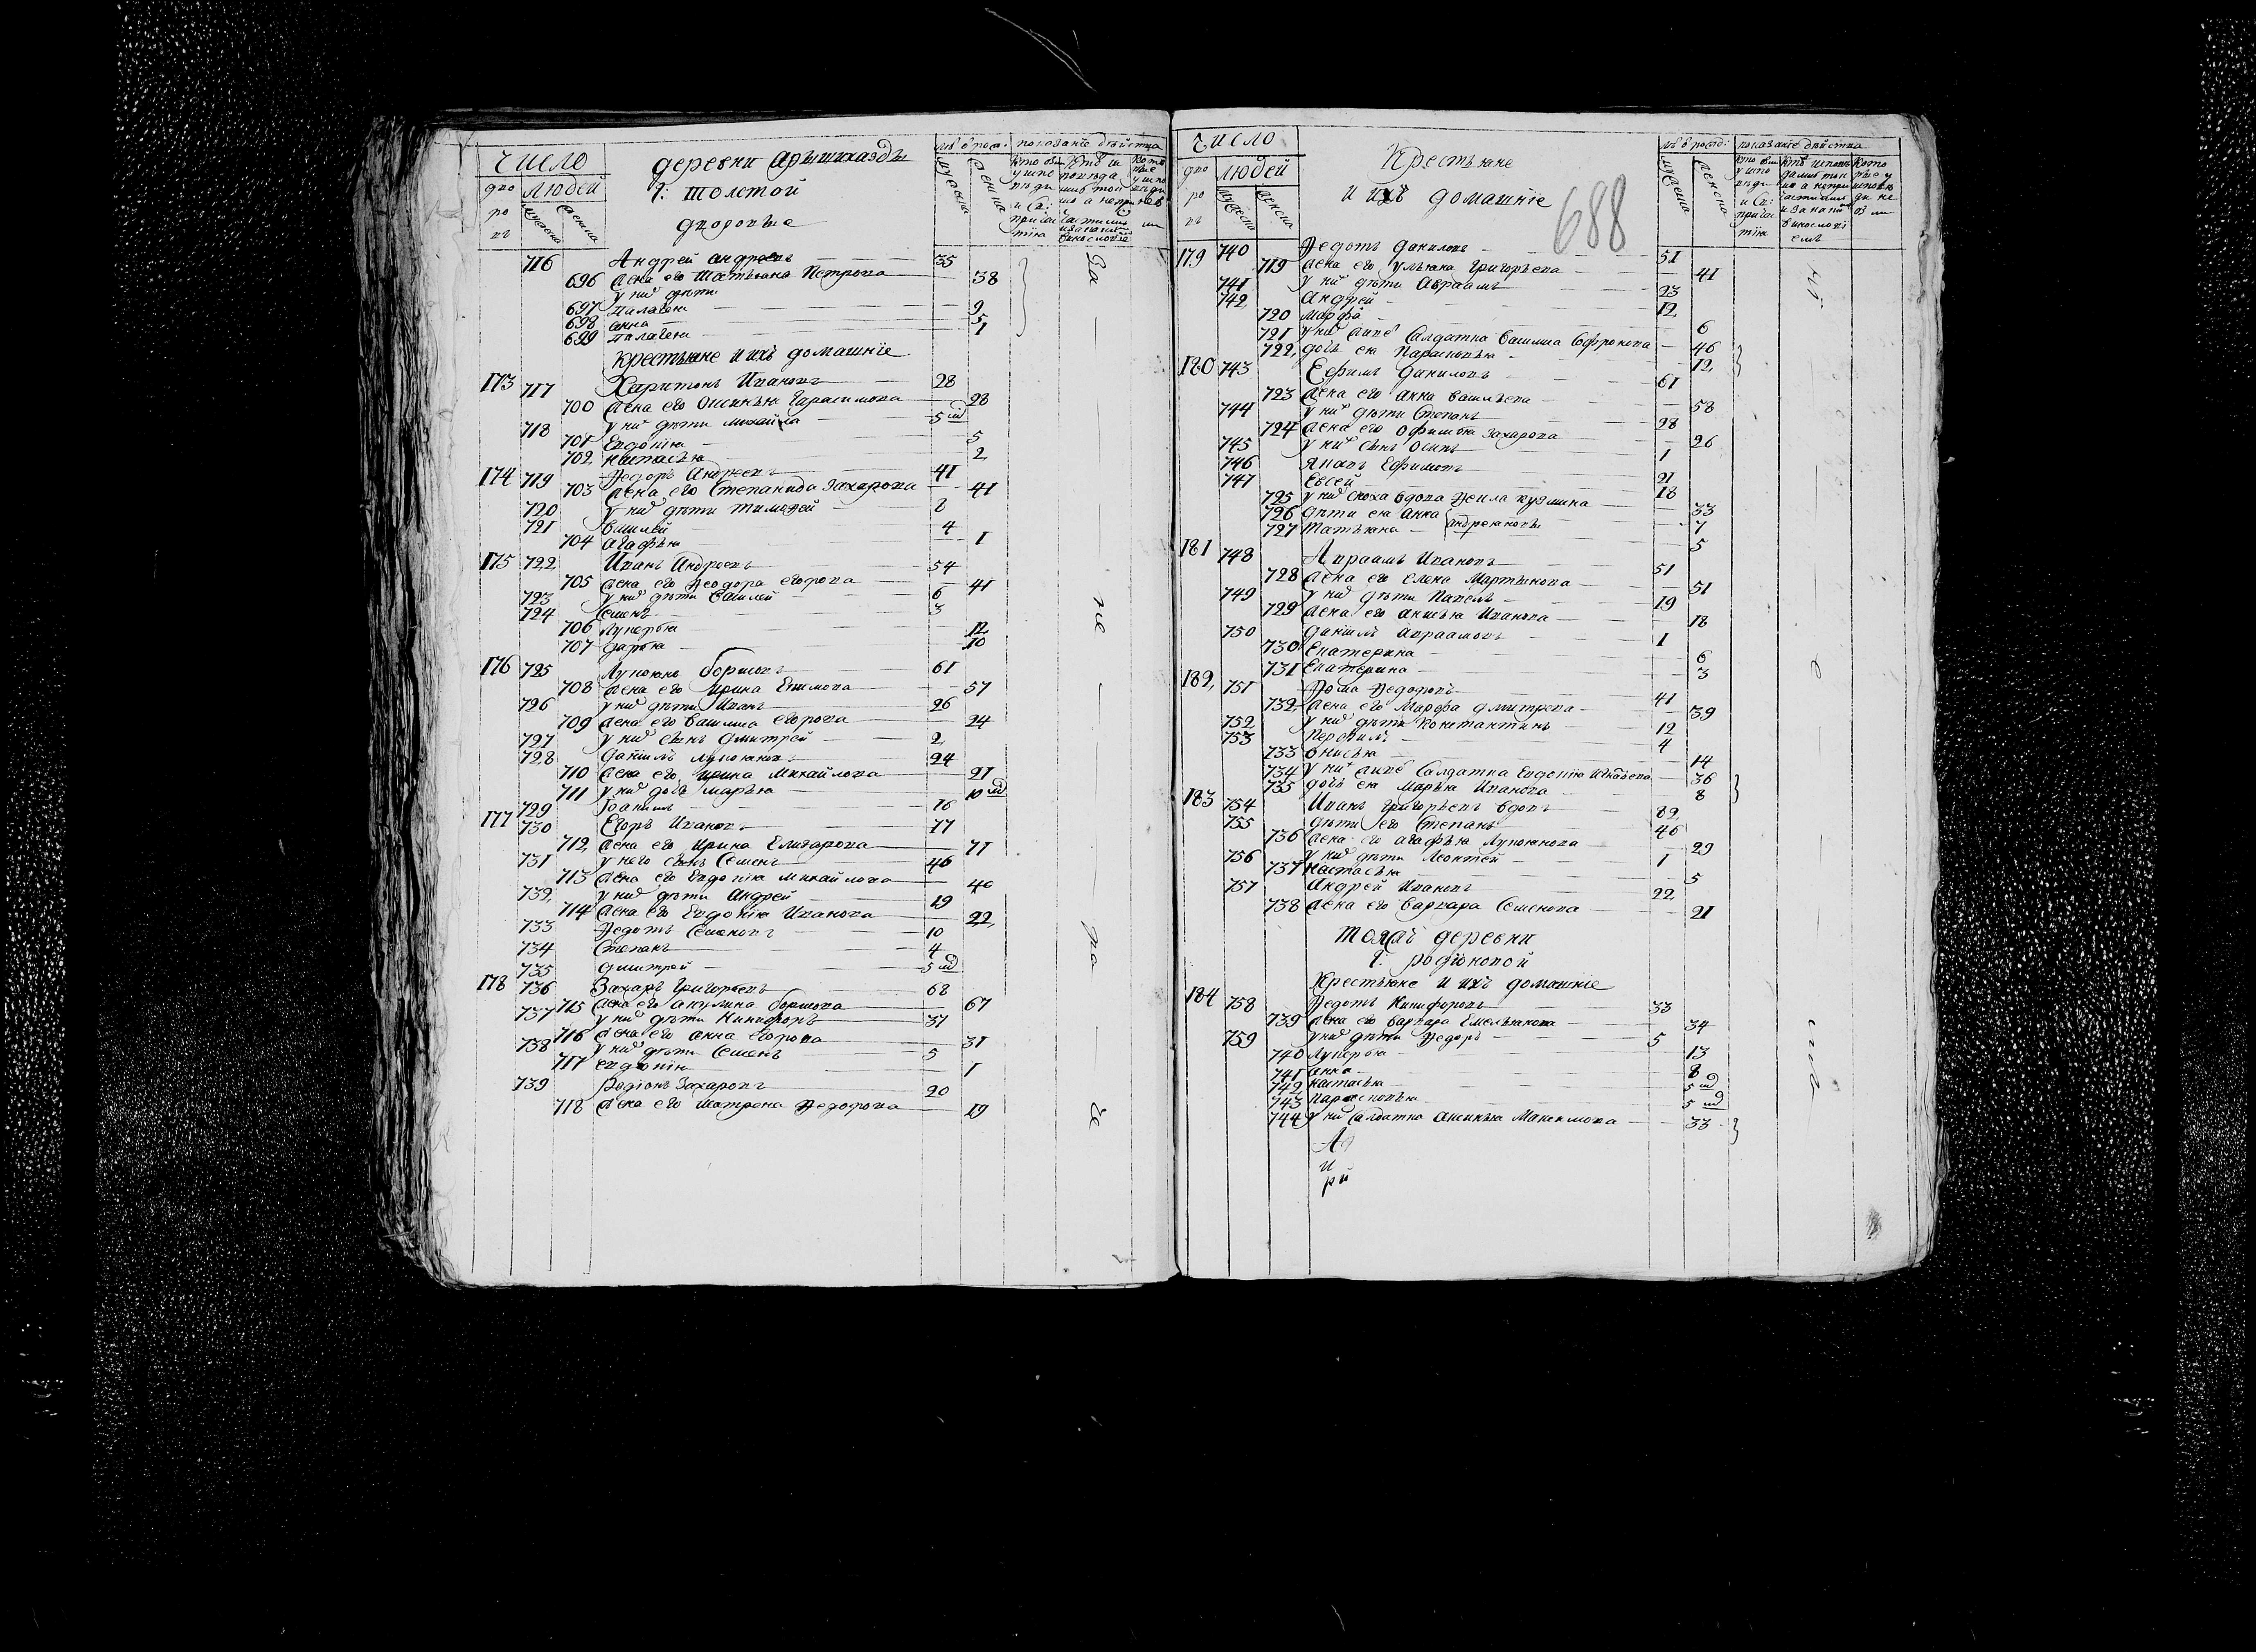 Число
деревни
Г: толстой
дворовые
дво
ро
въ
людей
716 Андрей Андреевъ 35
696 жена его Татьяна Петрова 38
у них дѣти
697 Палагея 9
698 Анна 5
699 Палагея 1
Крестьяне и ихъ домашніе
173 717 Харитонъ Ивановъ 28
700 жена его Оксинья Гарасимова 28
718 у них дѣти Михайла 5
701 Евдокія 5
702 Настасья 2
174 719 Ѳедоръ Андреевъ 41
703 жена его Степанида Захарова 41
720 у них дѣти Тимоѳей 8
721 Василей 4
704 Агафья 1
175 722 Иванъ Андреевъ 54
705 жена его Ѳеодора Егорова 41
723 у них дѣти Василей 6
724 Семенъ 3
706 Лукерья 12
707 Дарья 10
176 725 Лукоянъ Борисовъ 61
708 жена его Ирина 57
726 у них дѣти Иванъ 26
709 жена его Василиса Егорова 24
727 у них сынъ Дмитрей 2
728 Данилъ Лукояновъ 24
710 жена его Ирина Михайлова 21
711 у них дочь Марья 10
729 Іоакимъ 16
177 730 Егоръ Ивановъ 77
712 жена его Ирина Елизарова 71
731 у него сынъ Семенъ 46
713 жена его Евдокія Михайлова 40
732 у них дѣти Андрей 19
714 жена его Евдокія Иванова 22
733 Ѳедотъ Семеновъ 10
734 Степанъ 4
735 Дмитрей 5
178 736 Захаръ Григорьевъ 68
715 жена его Акулина Борисова 67
737 у них дѣти Никифоръ 37
716 жена его Анна Егорова 31
738 у них дѣти Семенъ 5
717 Евдокія 1
739 Родіонъ Захаровъ 20
718 жена его Матрена Ѳедорова 19
Число
Крестьяне
и ихъ домашніе
688
дво
ро
въ
людей
179 740 Ѳедотъ Даниловъ 51
719 жена его Ульяна Григорьева 41
741 у них дѣти Авраамъ 23
742 Андрей 12
720 Марфа 6
721 у них живе Салдатка Василиса Софронова 46
722 дочь ея Парасковья 12
180 743 Ефимъ Даниловъ 61
723 жена его Анна Васильева 58
744 у них дѣти Степанъ 28
724 жена его Офимья Захарова 26
745 у них сынъ Осипъ 1
746 Яковъ Ефимовъ 21
747 Евсей 18
725 у них сноха вдова Ѳекла Кузмина 33
726 дѣти ея Анна 7
727 Татьяна 5
181 748 Авраамъ Ивановъ 51
728 жена его Елена Мартынова 51
749 у них дѣти Павелъ 19
729 жена его Анисья Иванова 18
750 Данилъ Авраамовъ 1
730 Екатерина 6
731 Екатерина 3
182 751 Ѳома Ѳедотовъ 41
732 жена его Марфа Дмитрева 39
752 у них дѣти Константинъ 12
753 Перфилъ 4
733 Анисья 14
734 у них живе Салдатка Евдокія Игнатьева 36
735 дочь ея Марья Иванова 8
183 754 Иванъ Григорьевъ вдовъ 82
755 дѣти его Степанъ 46
736 жена его Агафья Лукоянова 29
756 у них дѣти Леонтей 1
737 Настасья 5
757 Андрей Ивановъ 22
738 жена его Варвара Семенова 21
тояжъ деревни
Г: родіоновой
Крестьяне и ихъ домашніе
184 758 Ѳедотъ Никифоровъ 33
739 жена его Варвара Емельянова 34
759 у них дѣти Ѳедоръ 5
740 Лукерья 13
741 Анна 8
742 Настасья 5
743 Парасковья 5
744 у них Салдатка Аксинья Максимова 33